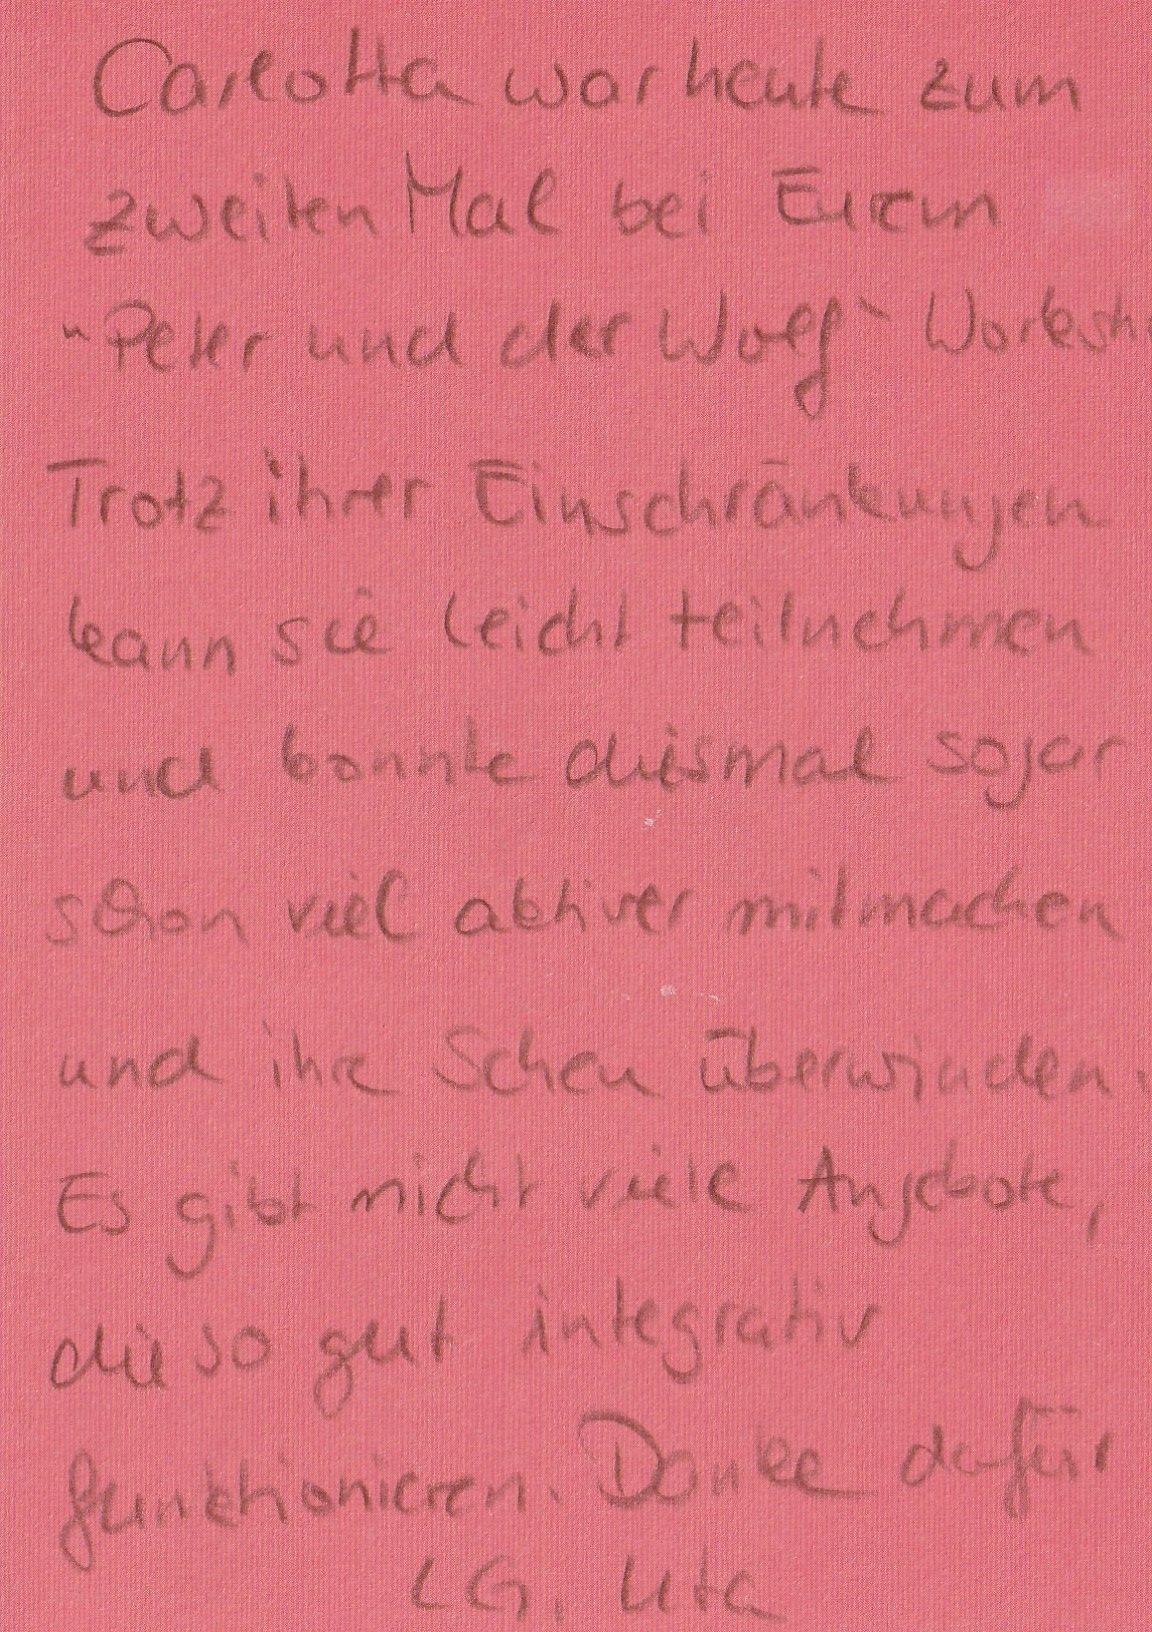 Carlotta war heute zum
zweiten Mal bei Eurem
"Peter und der Wolf" Worksh
Trotz ihrer Einschränkungen
kann sie leicht teilnehmen
und konnte diesmal sogar
schon viel aktiver mitmachen
und ihre Scheu überwinden.
Es gibt nicht viele Angebote,
die so gut integrativ
funktionieren. Danke dafür
LG, Uta